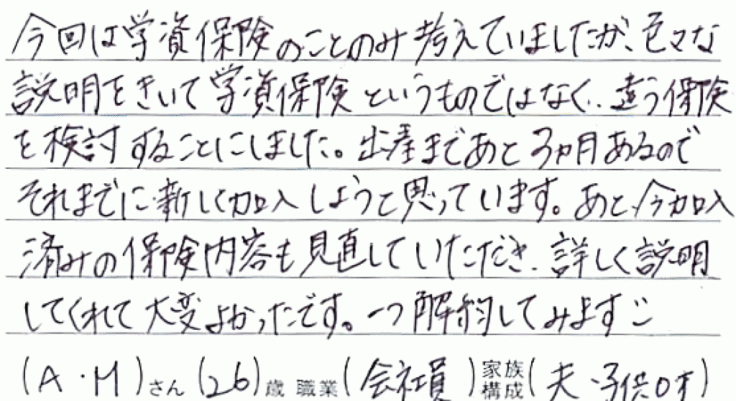 今回は学資保険のことのみ考えていましたが、色々な
説明をきいて学資保険というものではなく、違う保険
を検討することにしました。出産まであと3ヵ月あるので
それまでに新しく加入しようと思っています。あと、今加入
済みの保険内容も見直していただき、詳しく説明
してくれて大変よかったです。一つ解約してみます
(A・M)さん(26)歳 職業(会社員)家族構成(夫・子供0才)